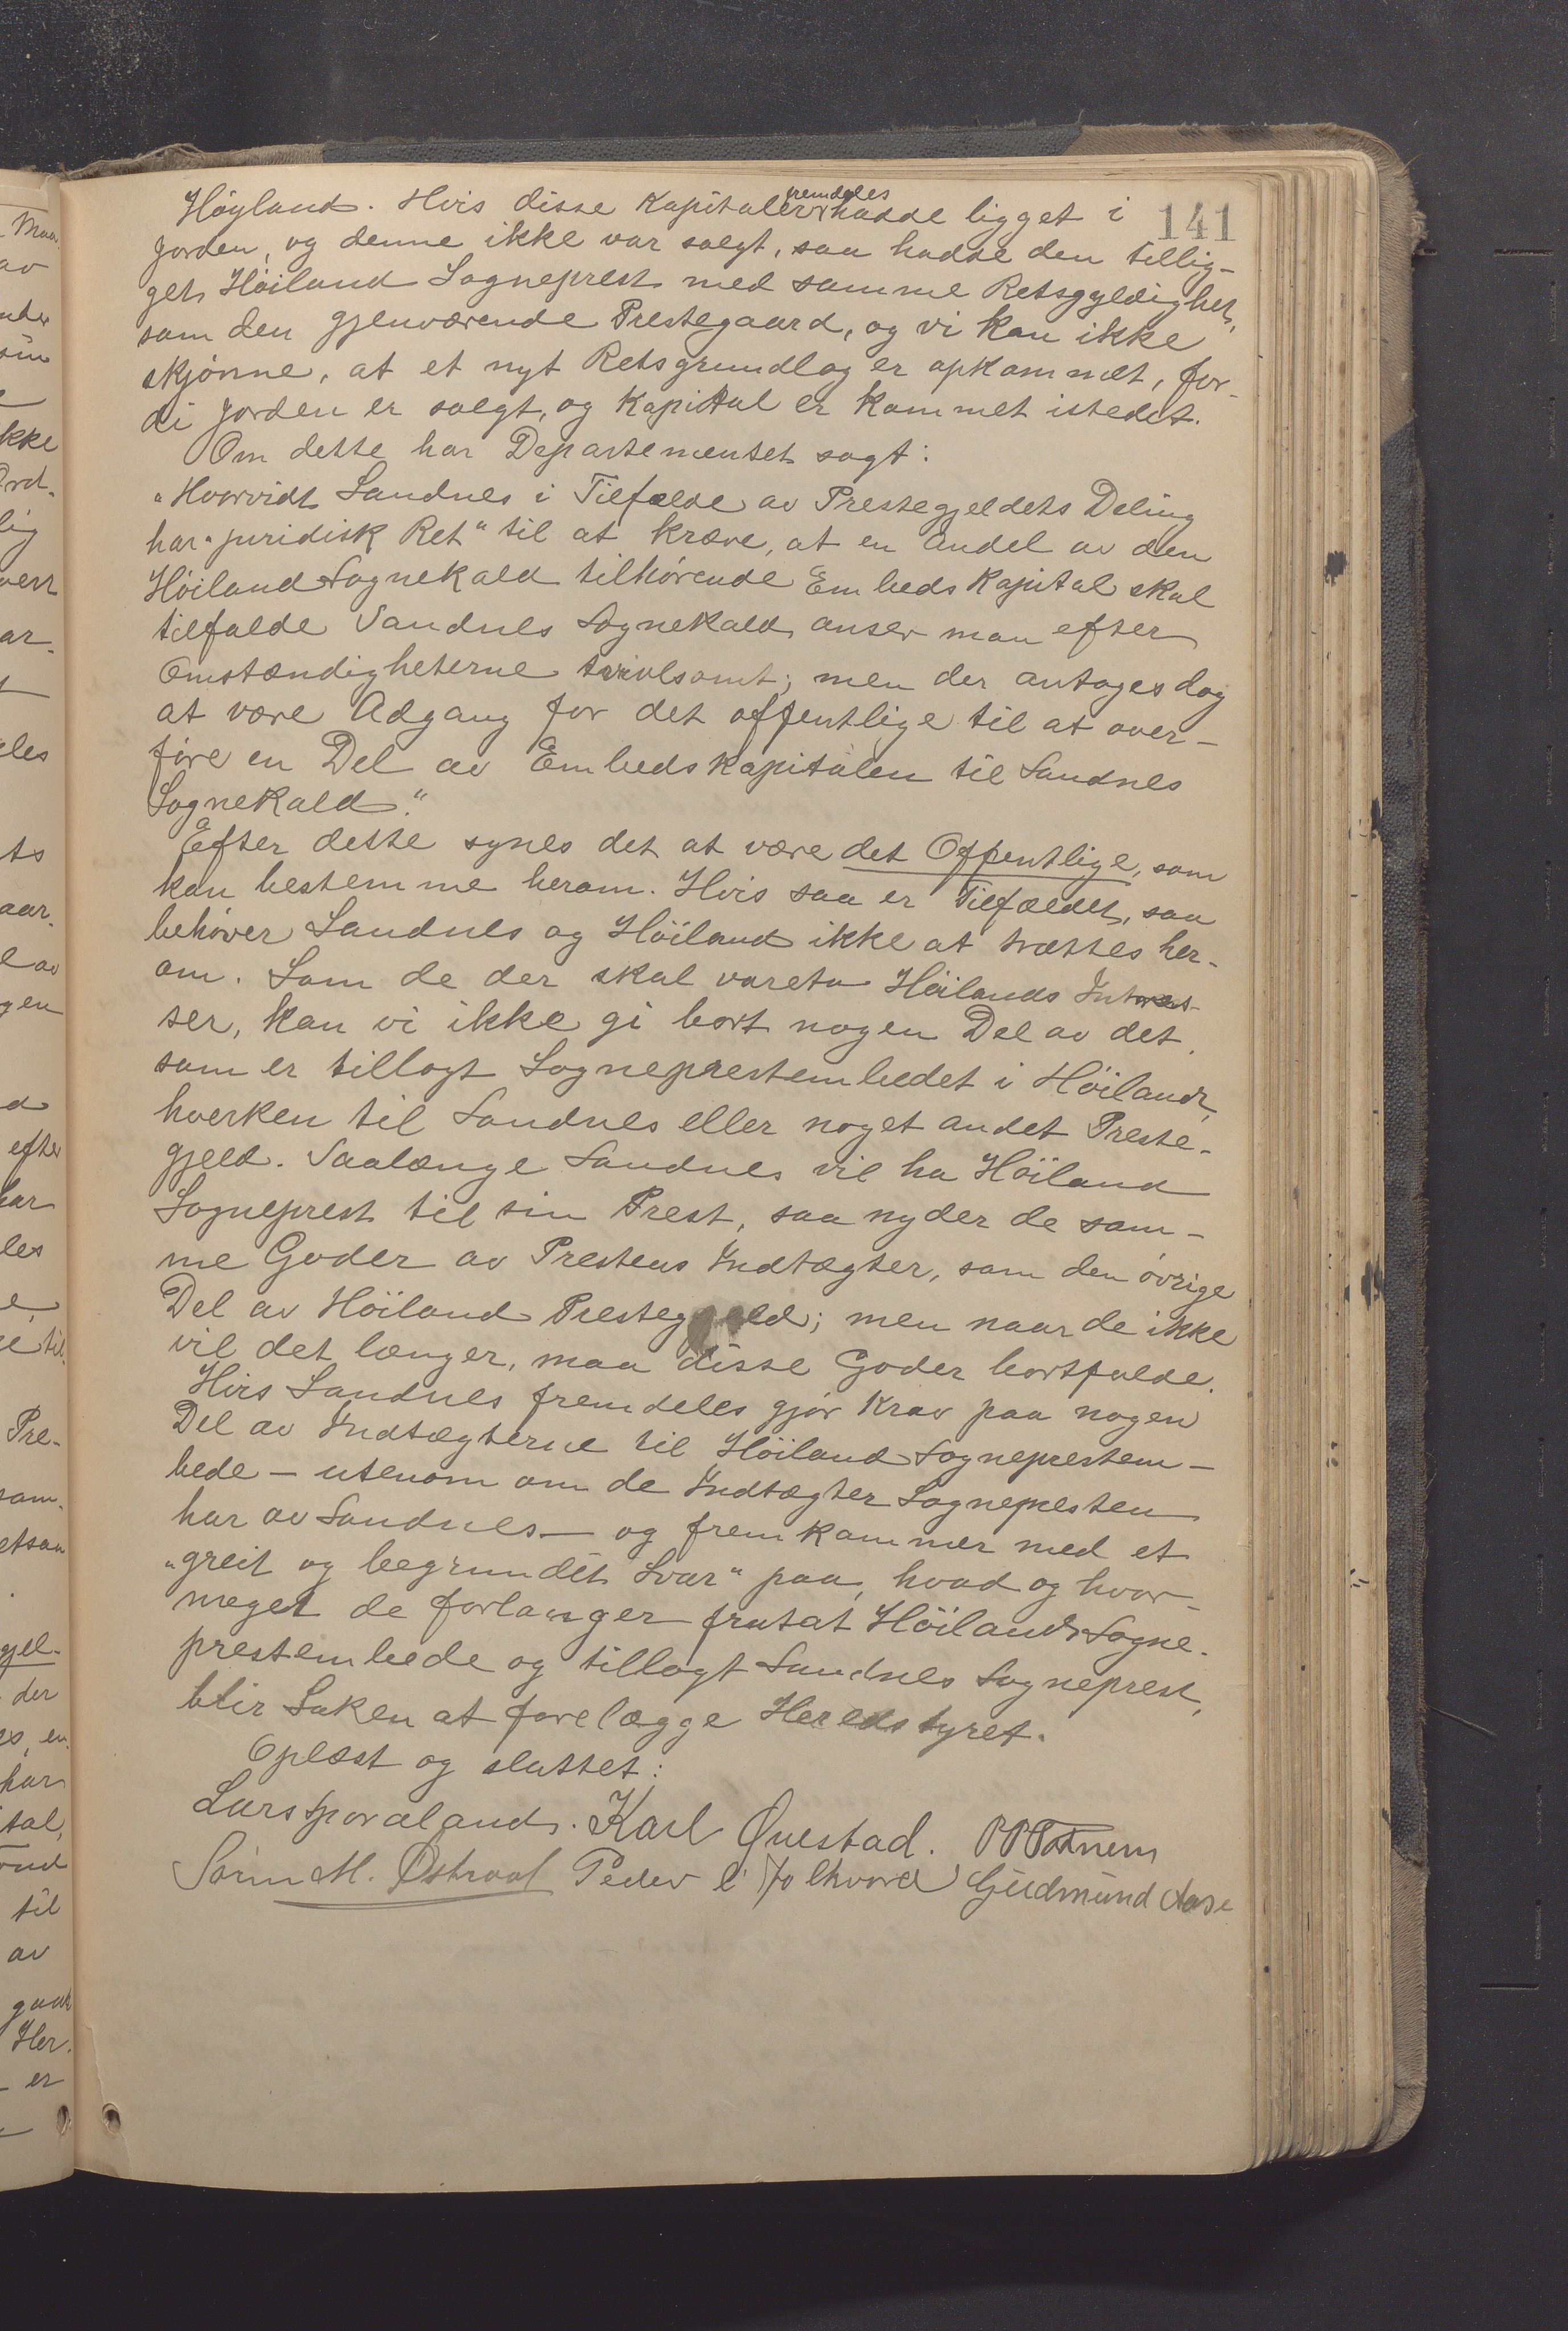 141
Höyland. Hvis disse Kapitaler fremdeles hadde ligget i
Jorden, og denne ikke var solgt, saa hadde den tillig-
get Höiland Sogneprest med samme Retsgyldighet,
som den gjenværende Prestegaard, og vi kan ikke
skjönne, at et nyt Retsgrundlag er opkommet, for-
di Jorden er solgt, og Kapital er kommet istedet.
Om dette har Departementet sagt:
"Hvorvidt Sandnes i Tilfælde av Prestegjeldets Deling
har "juridisk Ret" til at kræve, at en Andel av den
Höiland Sognekald tilhörende Embeds Kapital skal
tilfalde Sandnes Sognekald, anser man efter
Omstændigheterne tvivlsomt; men der antages dog
at være Adgang for det offentlige til at over-
före en Del av Embedskapitalen til Sandnes
Sognekald."
Efter dette synes det at være det Offentlige, som
kan bestemme herom. Hvis saa er Tilfældet, saa
behöver Sandnes og Höiland ikke at trættes her-
om. Som de der skal vareta Höilands Interes-
ser, kan vi ikke gi bort nogen Del av det,
som er tillagt Sogneprestembedet i Höiland,
hverken til Sandnes eller noget andet Preste-
gjeld. Saalænge Sandnes vil ha Höiland
Sogneprest til sin Prest, saa nyder de sam-
me Goder av Prestens Indtægter, som den övrige
Del av Höiland Prestegjeld; men naar de ikke
vil det længer, maa disse Goder bortfalde.
Hvis Sandnes fremdeles gjör Krav paa nogen
Del av Indtægterne til Höiland Sogneprestem-
bede – utenom om de Indtægter Sognepresten
har av Sandnes – og fremkommer med et
"greit og begrundet Svar" paa, hvad og hvor-
meget de forlanger fratat Höiland Sogne-
prestembede og tillagt Sandnes Sogneprest,
blir Saken at forelægge Heredstyret.
Oplæst og sluttet:
Lars Sporaland. Karl Questad. P P Totnem
Sörin M. Östraat Peder L Folkvord Gudmund Aase